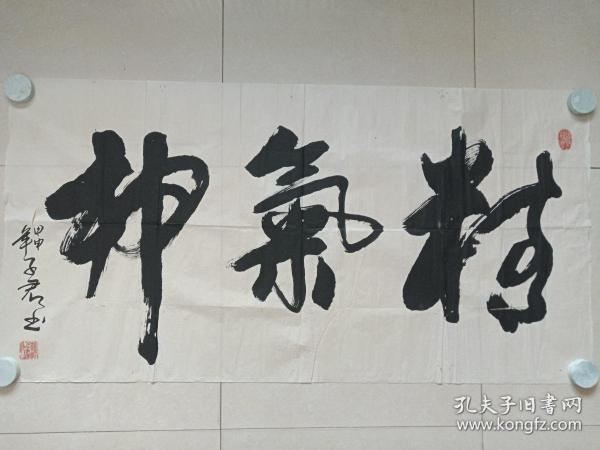 精氣神
子君书
孔夫子旧書网
www.kongfz.com